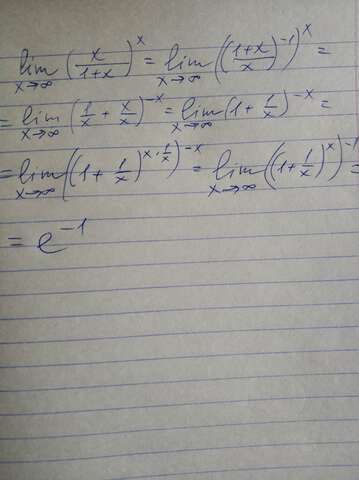 lim x→∞ (x/(1+x))^x = lim x→∞ (((1+x)/x)^-1)^x =
= lim x→∞ (1/x + x/x)^-x = lim x→∞ (1 + 1/x)^-x =
= lim x→∞ ((1 + 1/x)^(x · 1/x))^-x = lim x→∞ ((1 + 1/x)^x)^-1 =
= e^-1